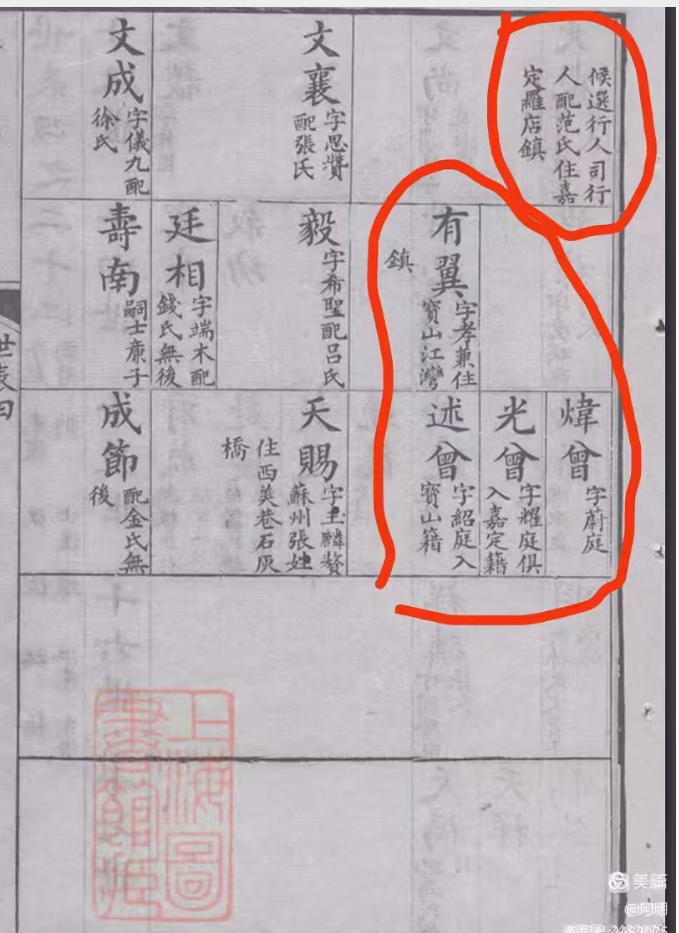 候選行人司行
人配范氏住嘉
定羅店鎮
文襄
字思贊
配張氏
文成
字儀九配
徐氏
有翼
字孝兼住
寶山江灣
鎮
毅
字希聖配呂氏
廷相
字端木配
錢氏無後
壽南
嗣士廉子
煒曾
字蔚庭
光曾
字耀庭俱
入嘉定籍
述曾
字紹庭入
寶山籍
天賜
字玉麟贅
蘇州張姓
住西美巷石灰
橋
成節
配金氏無
後
世表四
上海圖
書館藏
美篇